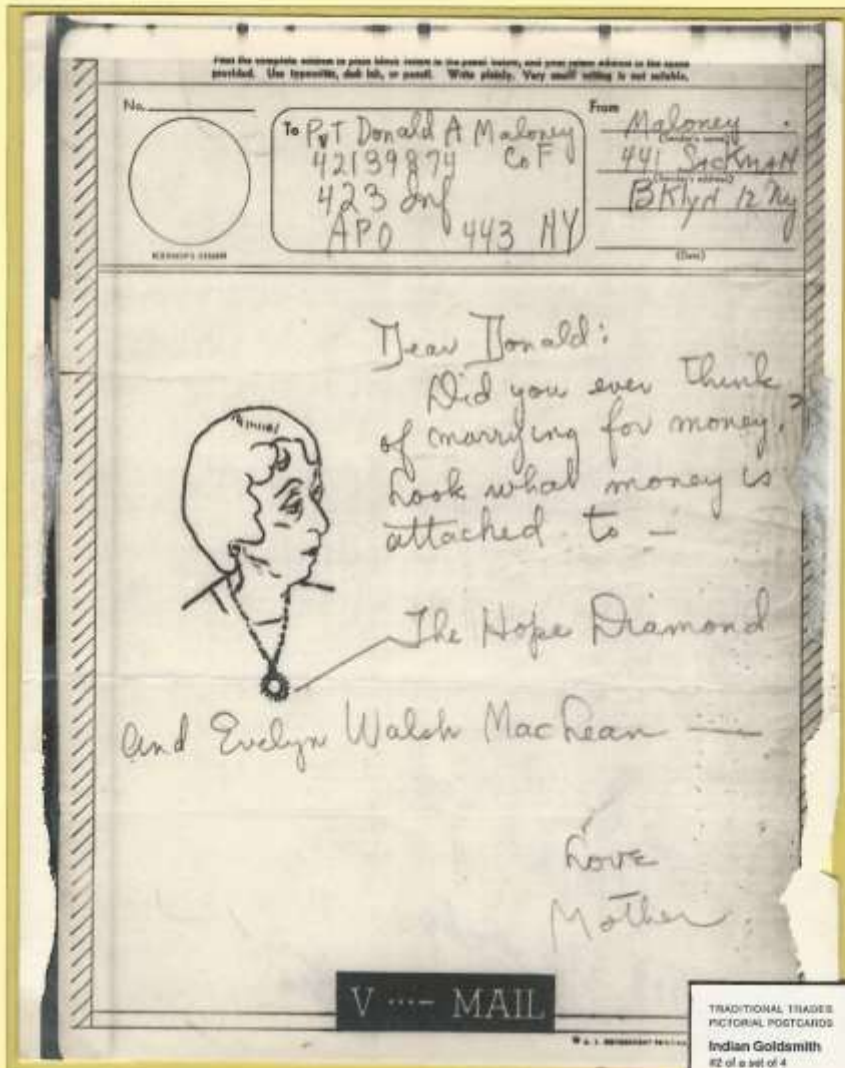 Print the complete address in plain block letters in the panel below, and your return address in the space
provided. Use typewriter, dark ink, or pencil. Write plainly. Very small writing is not suitable.
No.
To Pvt Donald A Maloney
42139874 Co F
423 Inf
APO 443 NY
From
Maloney
(Sender's name)
441 Sackman
(Sender's address)
BKlyn 12 Ny
(Date)
Dear Donald:
Did you ever think
of marrying for money?
Look what money is
attached to —
The Hope Diamond
and Evelyn Walsh MacLean —
Love
Mother
V ···– MAIL
TRADITIONAL TRADES
PICTORIAL POSTCARDS
Indian Goldsmith
#2 of a set of 4